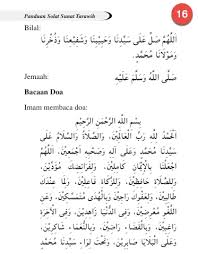 Panduan Solat Sunat Tarawih
16
Bilal:
اللَّهُمَّ صَلِّ عَلَى سَيِّدِنَا وَحَبِيْبِنَا وَشَفِيْعِنَا وَذُخْرِنَا
وَمَوْلَانَا مُحَمَّدٍ.
Jemaah:
صَلَّى اللَّهُ وَسَلَّمَ عَلَيْهِ
Bacaan Doa
Imam membaca doa:
بِسْمِ اللَّهِ الرَّحْمَنِ الرَّحِيْمِ
الْحَمْدُ لِلَّهِ رَبِّ الْعَالَمِيْنَ، وَالصَّلَاةُ وَالسَّلَامُ عَلَى
سَيِّدِنَا مُحَمَّدٍ وَعَلَى آلِهِ وَصَحْبِهِ أَجْمَعِيْنَ، اللَّهُمَّ
اجْعَلْنَا بِالْإِيْمَانِ كَامِلِيْنَ، وَلِفَرَائِضِكَ مُؤَدِّيْنَ،
وَلِلصَّلَاةِ حَافِظِيْنَ، وَلِلزَّكَاةِ فَاعِلِيْنَ، وَلِمَا عِنْدَكَ
طَالِبِيْنَ، وَلِعَفْوِكَ رَاجِيْنَ وَبِالْهُدَى مُتَمَسِّكِيْنَ، وَعَنِ
اللَّغْوِ مُعْرِضِيْنَ، وَفِي الدُّنْيَا زَاهِدِيْنَ، وَفِي الْآخِرَةِ
رَاغِبِيْنَ، وَبِالْقَضَاءِ رَاضِيْنَ، وَبِالنَّعْمَاءِ شَاكِرِيْنَ،
وَعَلَى الْبَلَايَا صَابِرِيْنَ، وَتَحْتَ لِوَاءِ سَيِّدِنَا مُحَمَّدٍ